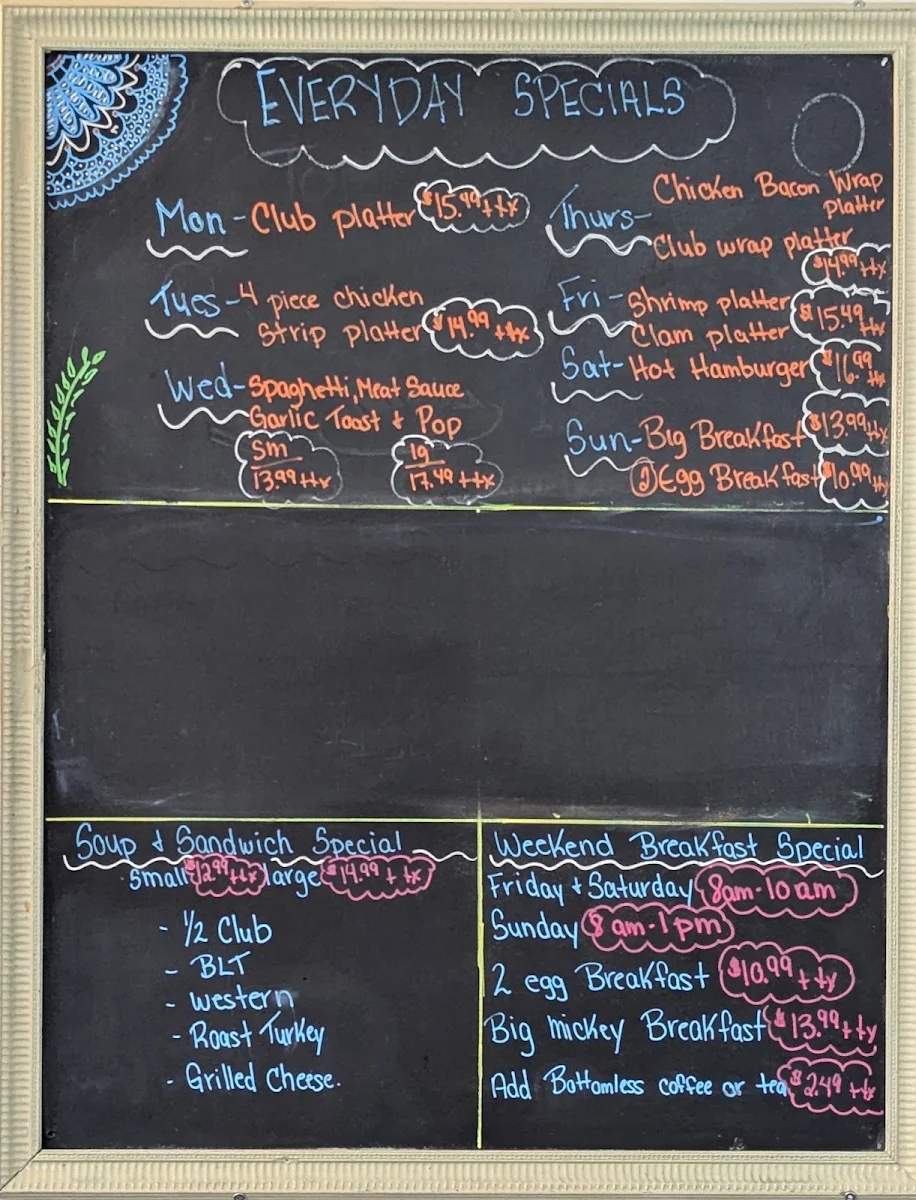 EVERYDAY SPECIALS
Mon - Club platter $15.99 + tx
Tues - 4 piece chicken
Strip platter $14.99 + tx
Wed - Spaghetti, Meat Sauce
Garlic Toast & Pop
Sm lg
13.99 + tx 17.49 + tx
Thurs - Chicken Bacon Wrap
platter
Club wrap platter
$14.99 + tx
Fri - Shrimp platter
Clam platter $15.49 + tx
Sat - Hot Hamburger $16.99 + tx
Sun - Big Breakfast $13.99 + tx
② Egg Breakfast $10.99 + tx
Soup & Sandwich Special
Small $12.99 + tx large $14.99 + tx
- 1/2 Club
- BLT
- Western
- Roast Turkey
- Grilled Cheese.
Weekend Breakfast Special
Friday + Saturday 8am - 10am
Sunday 8am - 1pm
2 egg Breakfast $10.99 + tx
Big mickey Breakfast $13.99 + tx
Add Bottomless coffee or tea $2.49 + tx